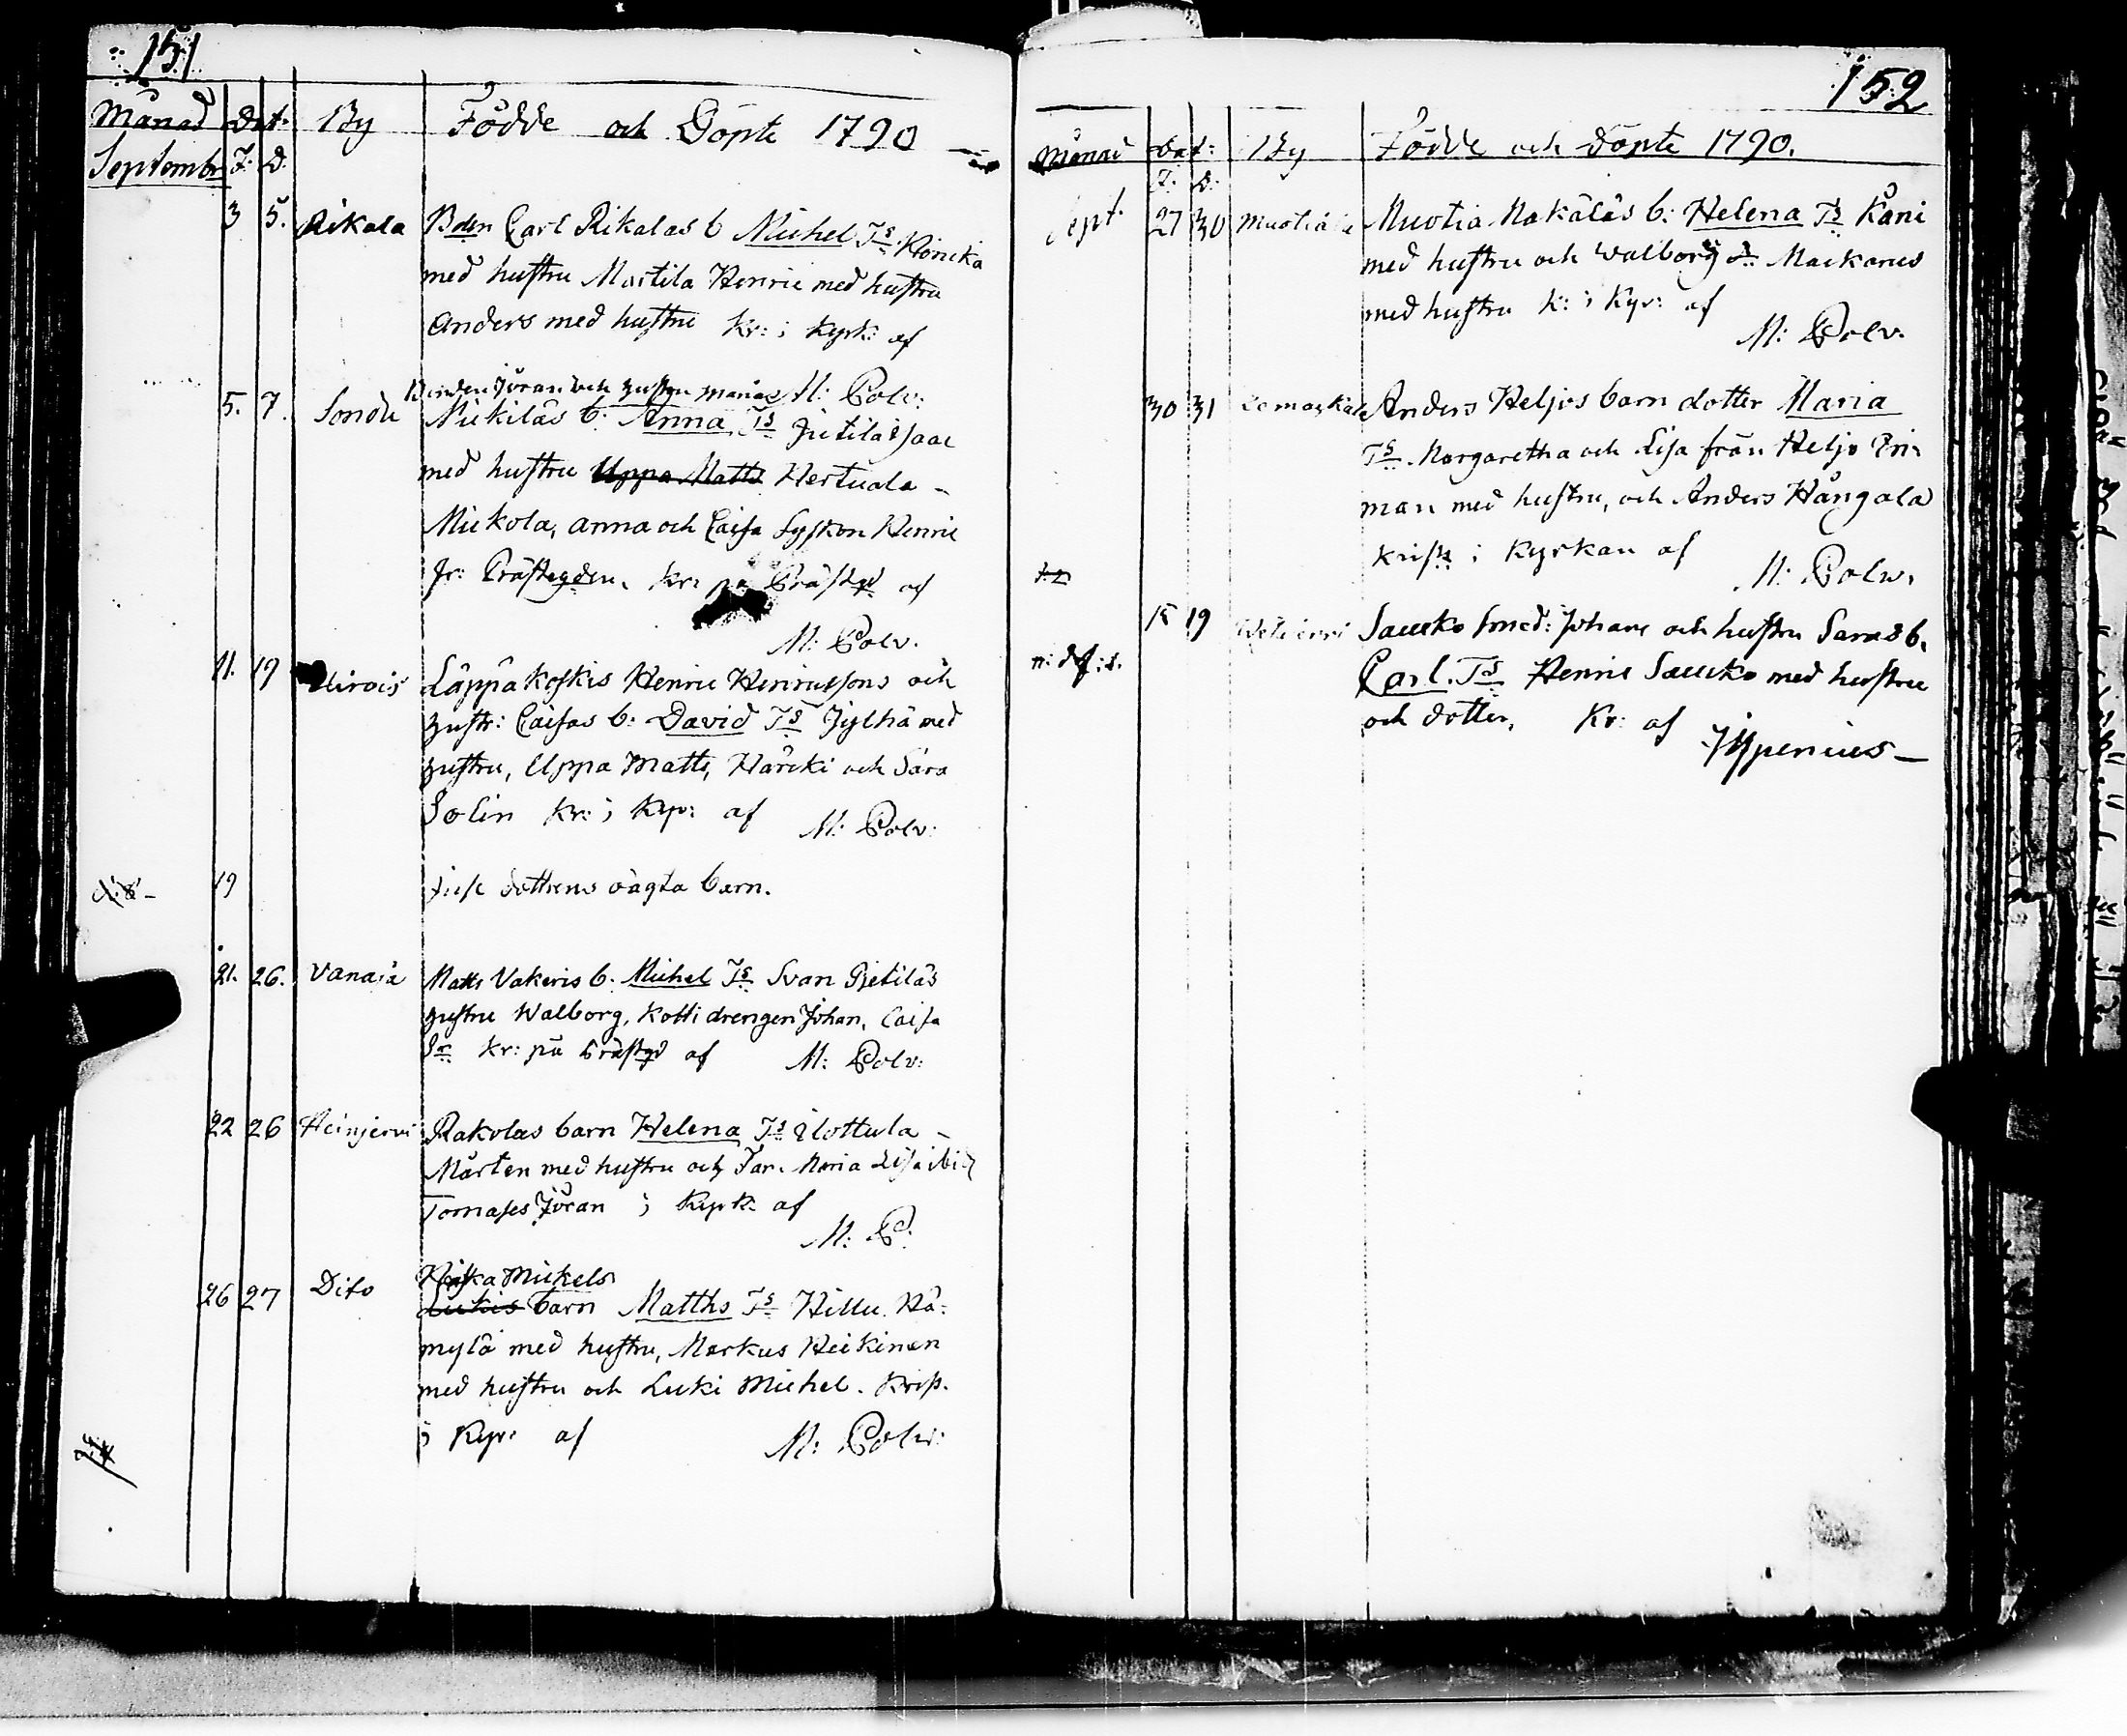 151
Månad Dat: By Födde och Döpte 1790
Septembr F. D.
3 5. Rikala Bden Carl Rikalas b Michel Ts.
med hustru Martila Henric med hustru
Anders med hustru kr: i kyrk: af
M: Polv:
Bonden Jöran och hustru Marias
5. 7. Sondu Mickilâs b: Anna Ts Isaac
med hustru Uppa Matts Hertuala -
Mickola, Anna och Caisa Syskon Henric
fr: Prästegden. kr: på Prästgd af
M: Polv.
11. 19 Läppäkoskis Henric Henricssons och
hustr: Caisas b: David Ts Jylhä med
hustru, Uppa Matts, Härcki och Sara
Solin kr: i kyr: af M: Polv:
19 dottrens oägta barn.
21. 26. Vanaiä Matts Vakeris b: Michel Ts Svan Pietilâs
hustru Walborg, Kotti drengen Johan, Caisa
kr: på Prästgd af M: Polv:
22 26 Heinjervi Rakolas barn Helena Ts Ilottula -
Mårten med hustru och Maria Lisa
Tomases Jöran i kyrk: af
M: P:
Mickels
26 27 Dito Lukis barn Matths Ts Hillu Hä-
mylä med hustru, Markus Heikinen
med hustru och Luki Michel. krist.
i kyr: af M: Polv:
152
Månad Dat: By Födde och döpte 1790.
F: D:
Sept. 27 30 Muotia Nakäläs b: Helena Ts Kåni
med hustru och Walborg Maikarus
med hustru k: i kyr: af
M: Polv.
30 31 Anders Heljos barn dotter Maria
Ts. Margaretha och Lisa från Heljo Eri-
man med hustru, och Anders Hångala
krist i kyrkan af
M: Polv.
15 19 Saucko Smed: Johans och hustru Saras b.
Carl. Ts Henric Saucko med hustru
och dotter, kr: af